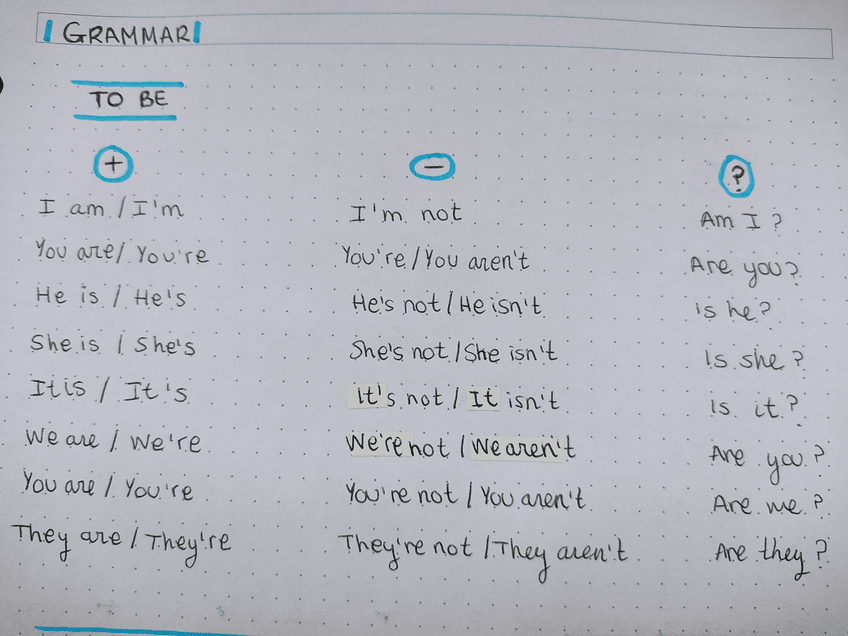 GRAMMAR
TO BE
+ - ?
I am / I'm I'm not Am I ?
You are / You're You're / You aren't Are you?
He is / He's He's not / He isn't is he?
She is / She's She's not / She isn't Is she ?
It is / It's It's not / It isn't Is it ?
We are / We're We're not / We aren't Are you ?
You are / You're You're not / You aren't Are me ?
They are / They're They're not / They aren't Are they ?